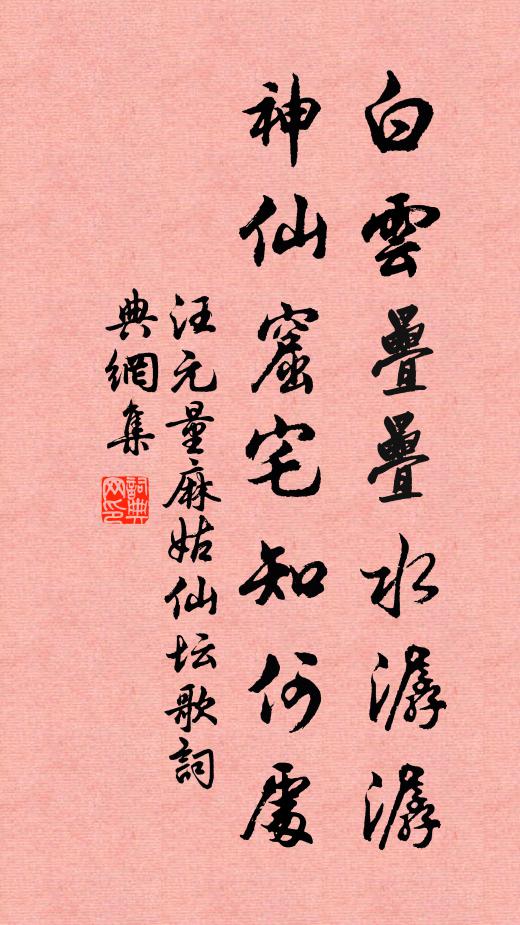 白雲疊疊水潺潺
神仙窟宅知何處
汪元量麻姑仙坛歌詞
典網集
詞典网印